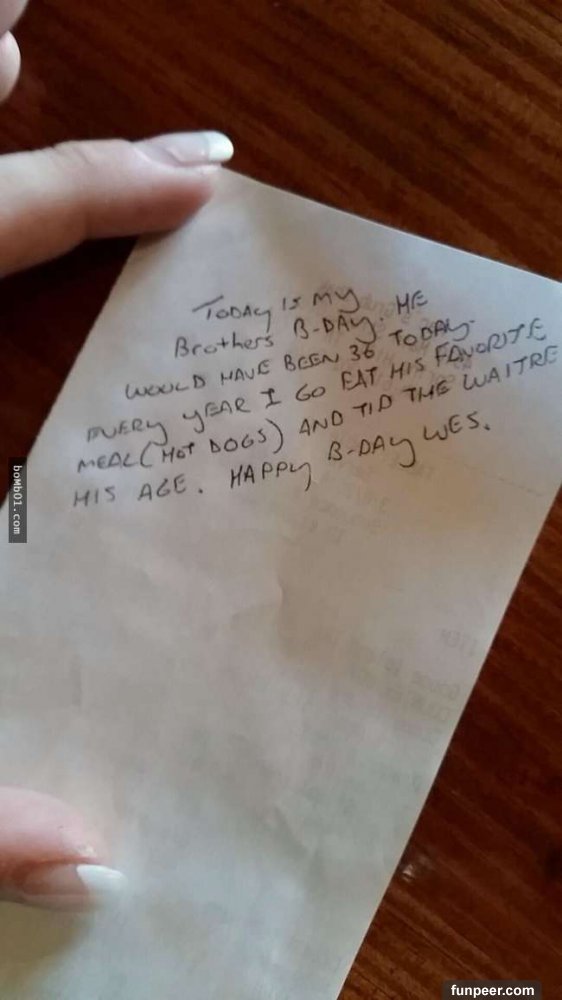 TODAY IS MY
BROTHERS B-DAY. HE
WOULD HAVE BEEN 36 TODAY.
EVERY YEAR I GO EAT HIS FAVORITE
MEAL (HOT DOGS) AND TIP THE WAITRE
HIS AGE. HAPPY B-DAY WES.
boMb01.com
funpeer.com